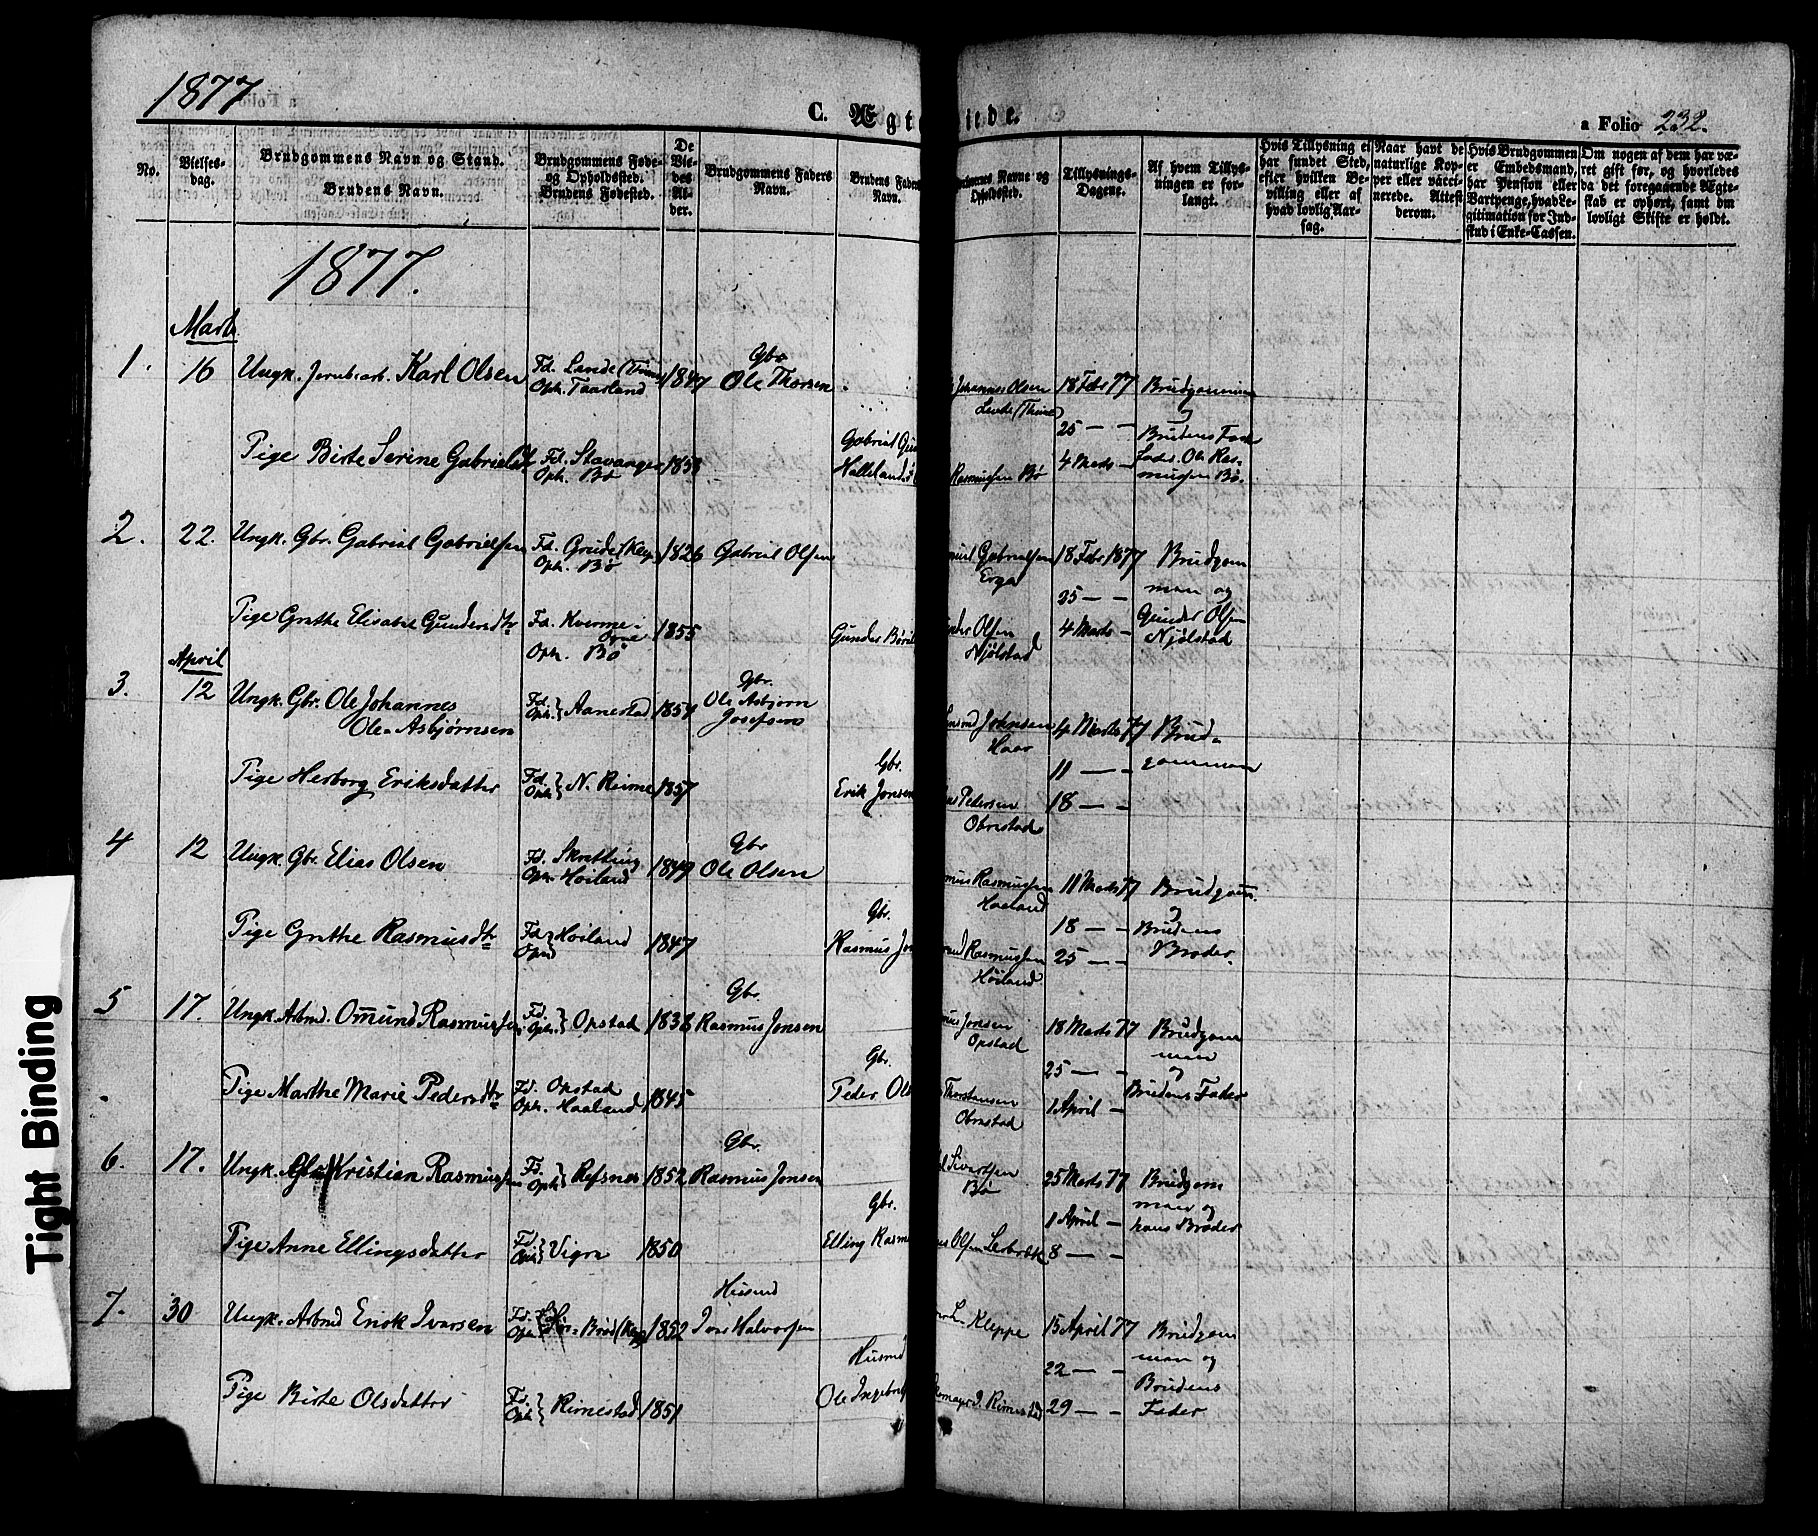 1877
C. Ægte
iede.
a Folio 232.
No.
Vielses-
dag.
Brudgommens Navn og Stand.
Brudens Navn.
Brudgommens Føde-
og Opholdssted.
Brudens Fødested.
De
Vie-
des
Al-
der.
Brudgommens Faders
Navn.
Brudens Faders
Navn.
Navne og
Opholdssted.
Tillysnings-
Dagene.
Af hvem Tillys-
ningen er for-
langt.
Hvis Tillysning ei
har fundet Sted,
efter hvilken Be-
villing eller af
hvad lovlig Aar-
sag.
Naar havt de
naturlige Kop-
per eller vacci-
nerede. Attest
derom.
Hvis Brudgommen
er Embedsmand,
har Pension eller
Vartpenge, hvad Le-
gitimation for Ind-
skud i Enke-Cassen.
Om nogen af dem har væ-
ret gift før, og hvorledes
da det foregaaende Ægte-
skab er ophørt, samt om
lovligt Skifte er holdt.
1877.
Marts
1. 16 Ungk. Jernb.arb. Karl Olsen Fd. Lende (Time) Oph. Taarland 1847 Gbr. Ole Thorsen
Johannes Olsen Lende (Time) 18 Febr 77 Brudgommen
25 — — og
Pige Birte Serine Gabrielsdtr Fd. Stavanger Oph. Bø 1853 Gabriel
Halleland
Rasmussen Bø 4 Marts — Brudens Foster
fader Ole Ras-
mussen Bø.
2. 22. Ungk. Gbr. Gabriel Gabrielsen Fd. Grude (Klep) Oph. Bø 1826 Gabriel Olsen
Gabrielsen Erga 18 Febr 1877 Brudgom
25 — — man og
Pige Grethe Elisabet Gundersdtr Fd. Kverme- Oph. Bø 1855 Gunder
Olsen Njølstad 4 Marts — Gunder Olsen
Njølstad
April
3. 12 Ungk. Gbr. Ole Johannes
Ole Asbjørnsen Fd. Oph. } Aanestad 1854 Gbr. Ole Asbjørn
Josefsen
Johnsen Haar 4 Marts 77 Brud-
11 — — gomman
Pige Herborg Eriksdatter Fd. Oph. } N. Reime 1857 Gbr. Erik Jonsen
Petersen Obrestad 18 — —
4 12 Ungk. Gbr. Elias Olsen Fd. Skretting Oph. Høiland 1849 Gbr. Ole Olsen
Rasmussen Haaland 11 Marts 77 Brudgom.
18 — — og
Pige Grethe Rasmusdtr Fd. Oph. } Høiland 1847 Gbr. Rasmus
Rasmussen Høiland 25 — — Brudens
Broder.
5 17. Ungk. Arbmd. Omund Rasmussen Fd. Oph. } Opstad 1838 Gbr. Rasmus Jonsen
Jonsen Opstad 18 Marts 77 Brudgom
man
25 — — og
Pige Marthe Marie Pedersdtr Fd. Opstad Oph. Haaland 1845 Gbr. Peder Ols
Thorstensen Obrestad 1 April — Brudens Fader
6. 17. Ungk. Kristian Rasmussen Fd. Oph. } Refsnes 1852 Gbr. Rasmus Jonsen
Sivertsen Bø 25 Marts 77 Brudgom
1 April — man og
hans Broder
Pige Anne Ellingsdatter Fd. Oph. } Vigre 1850 Gbr. Elling Rasm
Olsen Lerbrekk 8 — —
7. 30 Ungk. Arbmd Erik Ivarsen Fd. Oph. Bred (Klep) 1852 Husmd Iver Halvorsen
Kleppe 15 April 77 Brudgom
22 — — man og
Pige Birte Olsdatter Fd. Oph. } Rimestad 1851 Husmd Ole
Rimestad 29 — — Brudens
Fader
Tight Binding